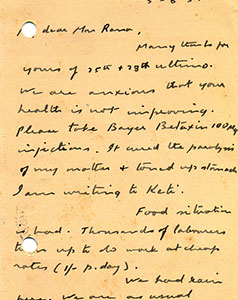 dear Mrs Rana,
Many thanks for
yours of 25th & 28th ultimo.
We are anxious that your
health is not improving.
Please take Bayer Betaxin 100 Mg
injections. It cured the paralysis
of my mother & toned up stomach
I am writing to Keti.
Food situation
is bad. Thousands of labourers
turn up to do work at cheap
rates (1/- p. day).
We had rain
here. We are as usual